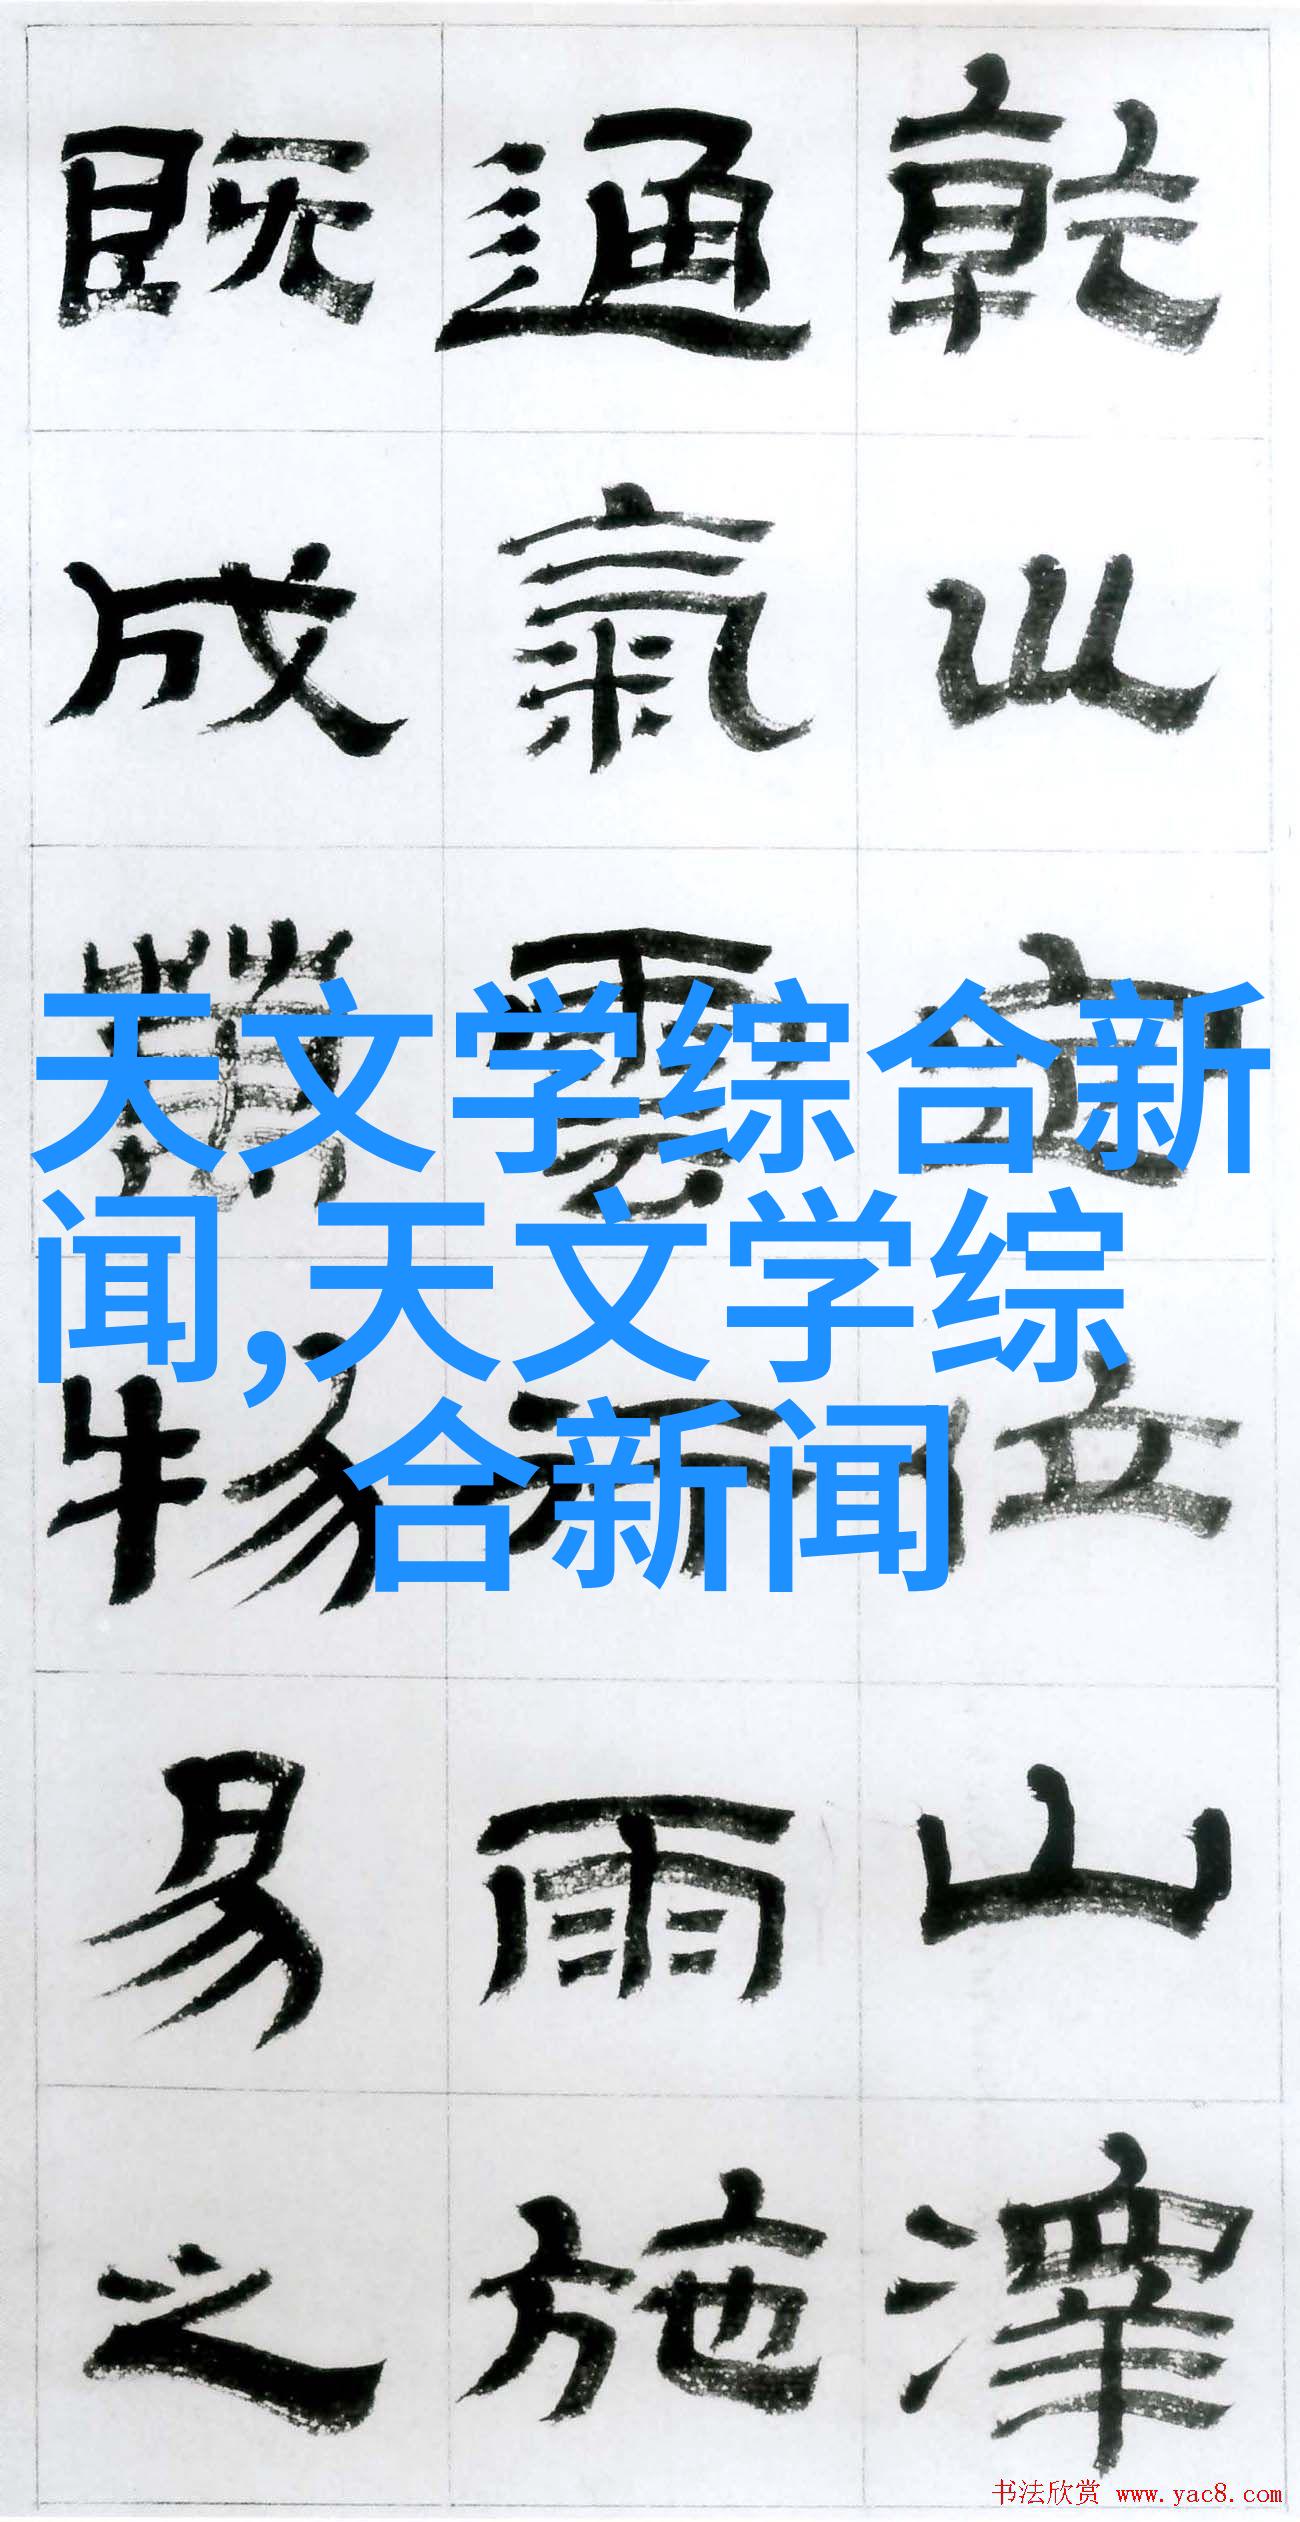 乾以定位山澤
通氣雲行雨施
既成萬物易之
天文学综合新
闻,天文学综
合新闻
书法欣赏 www.yac8.com